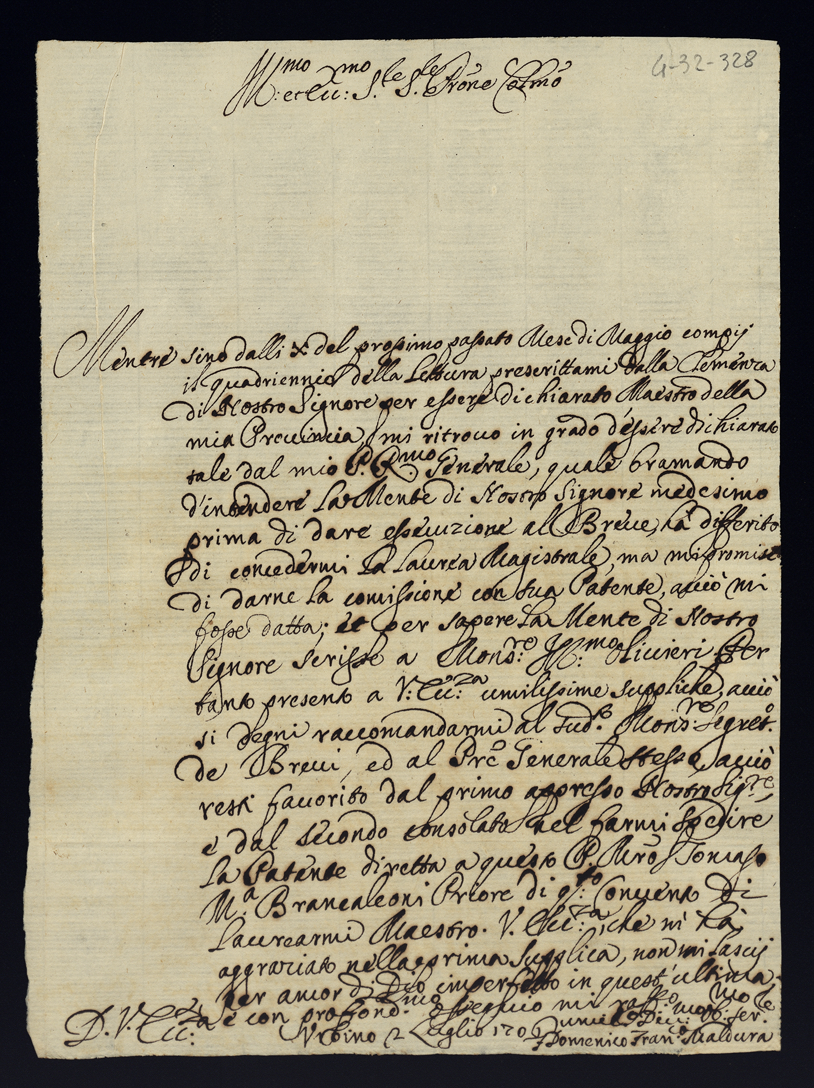 4-32-328
Ill:mo et Ecc:mo S.re S.re Prõne Colmõ
Mentre sino dalli X del prossimo passato Mese di Maggio compij
il quadriennio della Lettura prescrittami dalla Clemenza
di Nostro Signore per essere dichiarato Maestro della
mia Provincia, mi ritrovo in grado d'essere dichiarato
tale dal mio P. R:mo Generale, quale bramando
d'intendere la Mente di Nostro Signore medesimo
prima di dare essecuzione al Breve, hà differito
di concedermi la Laurea Magistrale, ma mi promise
di darne la comissione con sua Patente, acciò mi
fosse datta; et per sapere la Mente di Nostro
Signore scrisse a Mons:re Ill:mo Olivieri Per
tanto presento a V: Ecc:za umilissime suppliche, acciò
si degni raccomandarmi al sud.o Mons:re Segret.o
de Brevi, ed al Pre Generale stesso, acciò
resti favorito dal primo appresso Nostro Sig:re,
e dal secondo consolato nel farmi spedire
la Patente diretta a questo P. Mrõ Tomaso
M.a Brancaleoni Priore di q:sto Convento di
Laurearmi Maestro. V. Ecc:za, che mi hà
aggraziato nella prima supplica, non mi lascij
per amor di Dio imperfetto in quest'ultima
e con profond:mo ossequio mi raff.o
D. V. Ecc:za
Urbino 2 Luglio 170
Umil:mo Dev:mo Obb: Ser.
Domenico Fran.o Maldura